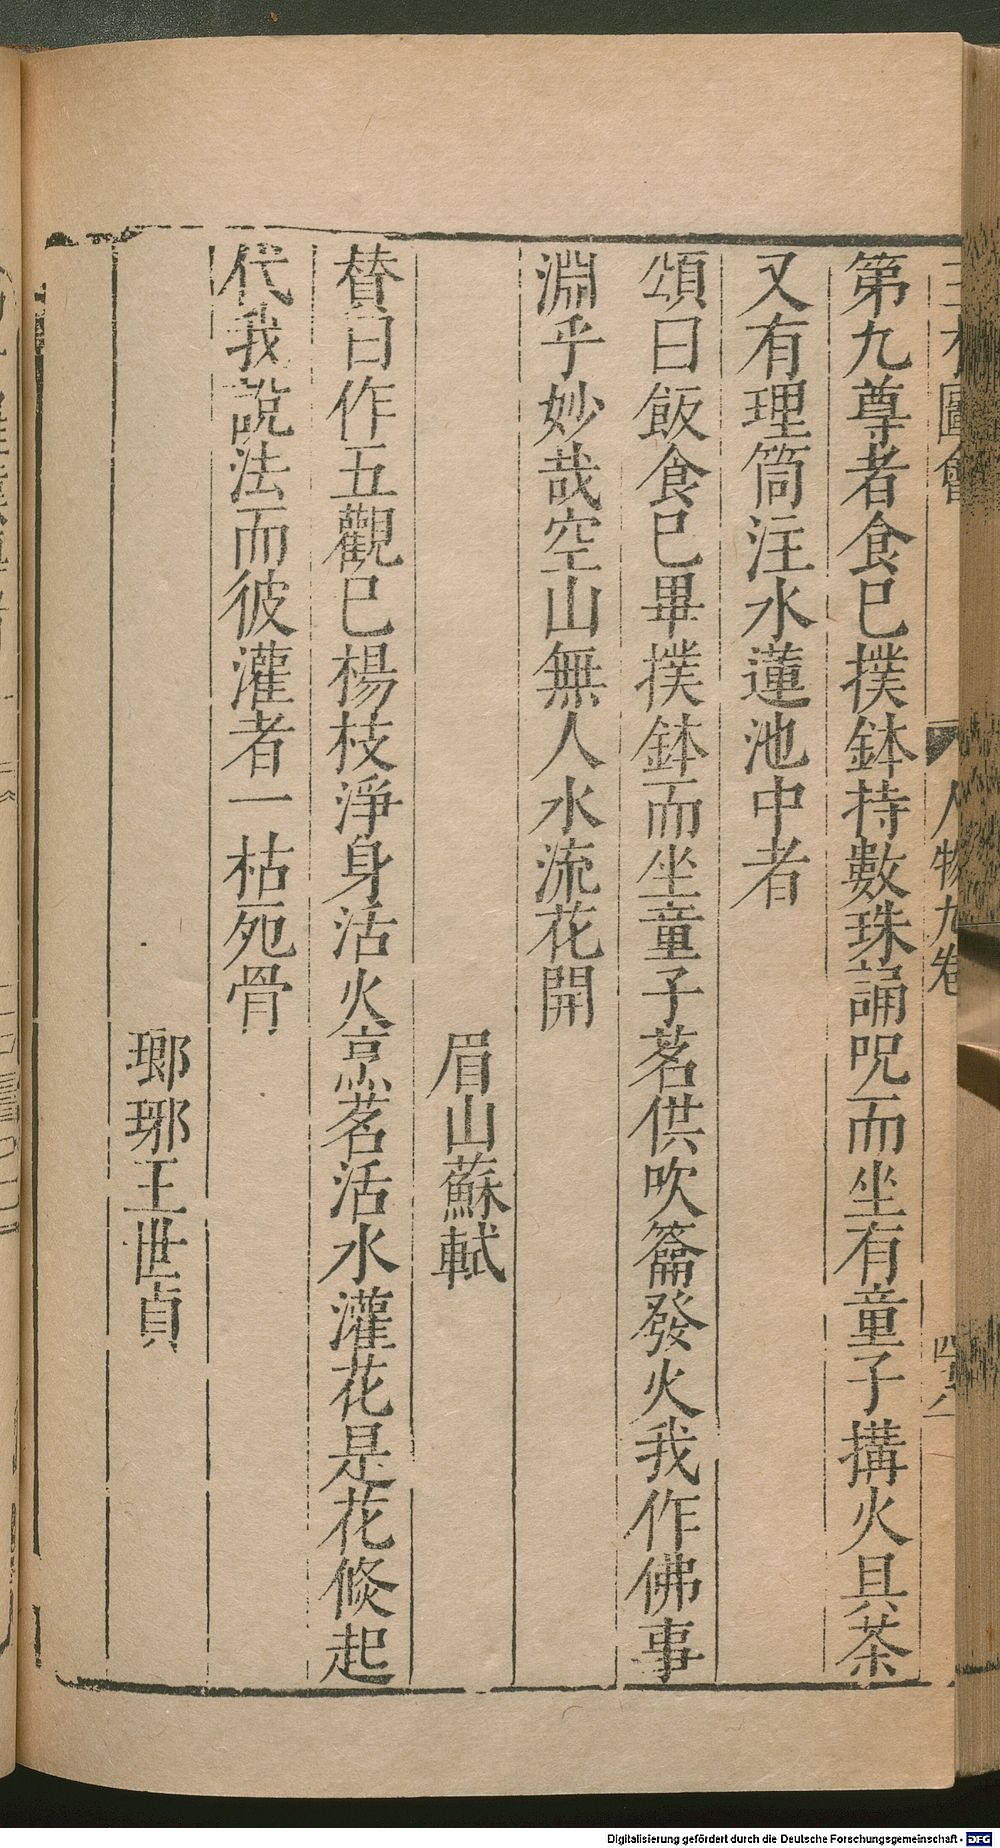 三才圖會
人物九卷
第九尊者食巳撲鉢持數珠誦呪而坐有童子搆火具茶
又有理筒注水蓮池中者
頌曰飯食巳畢撲鉢而坐童子茗供吹籥發火我作佛事
淵乎妙哉空山無人水流花開
眉山蘇軾
賛曰作五觀巳楊枝淨身活火烹茗活水灌花是花倐起
代我說法而彼灌者一枯死骨
瑯琊王世貞
Digitalisierung gefördert durch die Deutsche Forschungsgemeinschaft - DFG